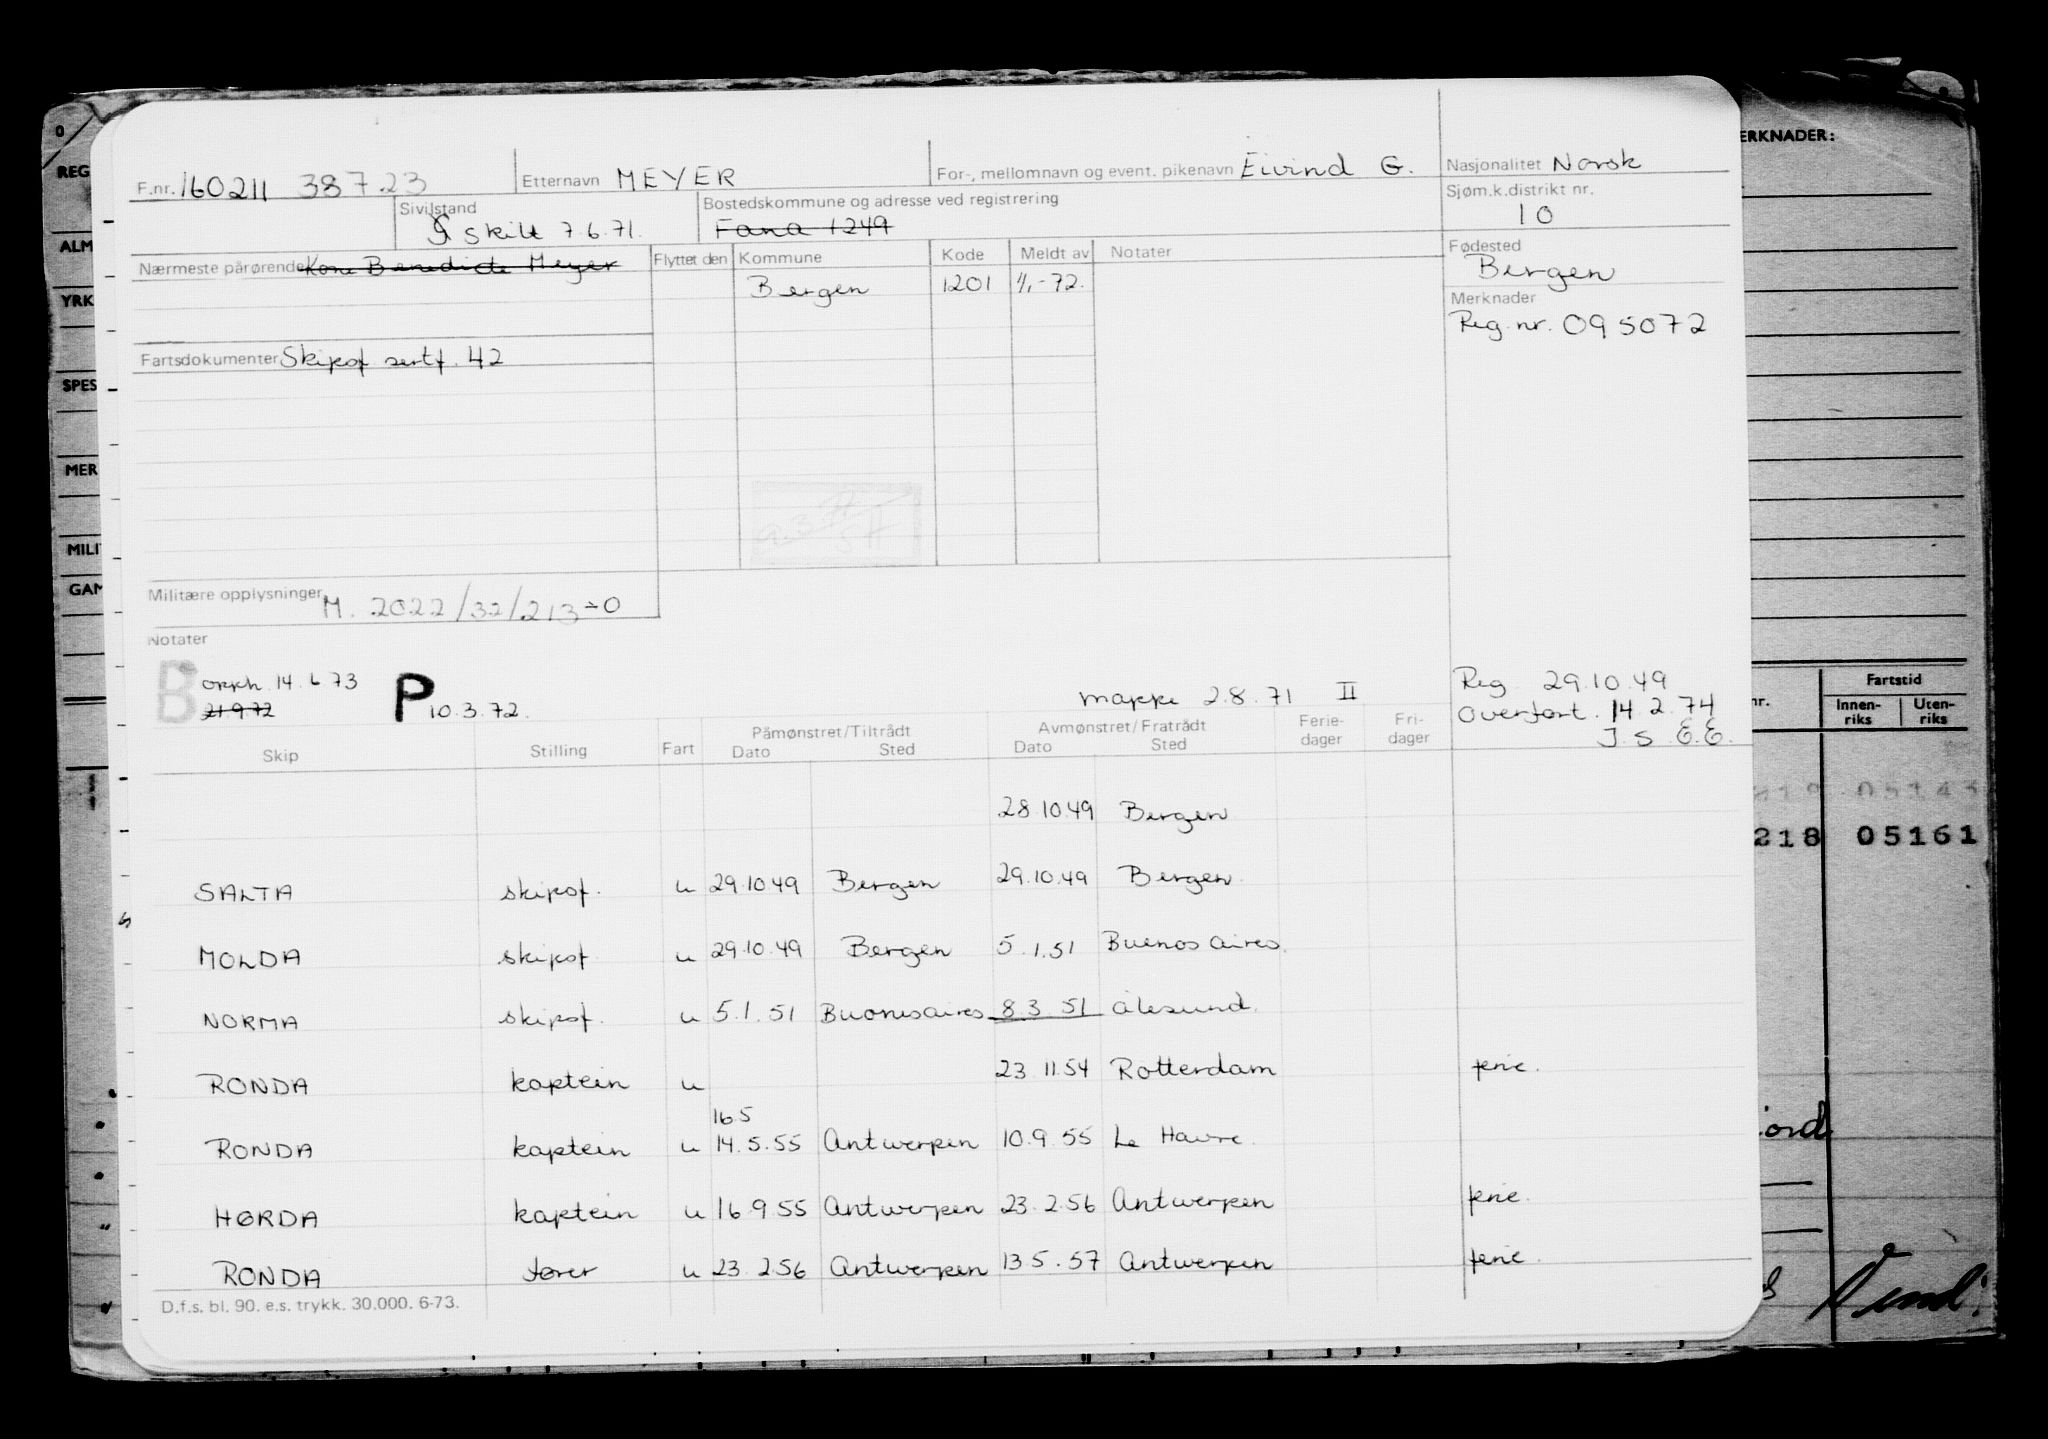 ERKNADER:
F.nr. 160211 38723 Etternavn MEYER For-, mellomnavn og event. pikenavn Eivind G. Nasjonalitet Norsk
Sivilstand skilt 7.6.71. Bostedskommune og adresse ved registrering Fana 1249 Sjøm.k.distrikt nr. 10
Nærmeste pårørende Kone Benedicte Meyer Flyttet den Kommune Kode Meldt av Notater Fødested Bergen
Bergen 1201 1/1-72. Merknader
Reg. nr. 095072
Fartsdokumenter Skipsf sertf. 42
Militære opplysninger M. 2022/32/213-0
Notater
B orkh. 14.6.73 P 10.3.72. mappe 2.8.71 II Reg 29.10.49
21.9.72 Overført. 14.2.74
J.S E.E.
Skip Stilling Fart Påmønstret/Tiltrådt Dato Sted Avmønstret/Fratrådt Dato Sted Ferie-dager Fri-dager
28.10.49 Bergen
SALTA skipsf. u 29.10.49 Bergen 29.10.49 Bergen
MOLDA skipsf u 29.10.49 Bergen 5.1.51 Buenos aires.
NORMA skipsf. u 5.1.51 Buonesaires 8.3.51 ålesund.
RONDA kaptein u 23.11.54 Rotterdam ferie.
16.5
RONDA kaptein u 14.5.55 Antwerpen 10.9.55 Le Havre.
HØRDA kaptein u 16.9.55 Antwerpen 23.2.56 Antwerpen ferie.
RONDA fører u 23.2.56 Antwerpen 13.5.57 Antwerpen ferie.
D.f.s. bl. 90. e.s. trykk. 30.000. 6-73.
REG
ALM
YRK
SPES
MER
MILI
GAM
nr. Fartstid
Innen-riks Uten-riks
218 05161